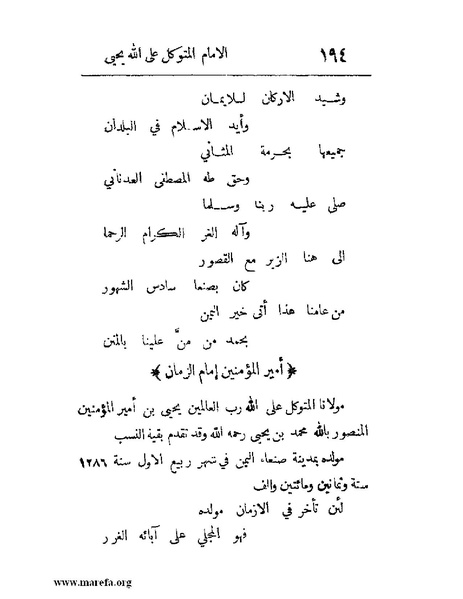 ١٩٤ الامام المتوكل على الله يحيى
وشيد الاركان للايمان
وأيد الاسلام في البلدان
جميعها بحرمة المثاني
وحق طه المصطفى العدناني
صلى عليه ربنا وسلما
وآله الغر الكرام الرحما
الى هنا الزبر مع القصور
كان بصنعا سادس الشهور
من عامنا هذا أتى خير اليمن
بحمد من منَّ علينا بالمنن
﴿ أمير المؤمنين إمام الزمان ﴾
مولانا المتوكل على الله رب العالمين يحيى بن أمير المؤمنين
المنصور بالله محمد بن يحيى رحمه الله وقد تقدم بقية النسب
مولده بمدينة صنعاء اليمن في شهر ربيع الاول سنة ١٢٨٦
ستة وثمانين ومائتين والف
لئن تأخر في الازمان مولده
فهو المجلي على آبائه الغرر
www.marefa.org